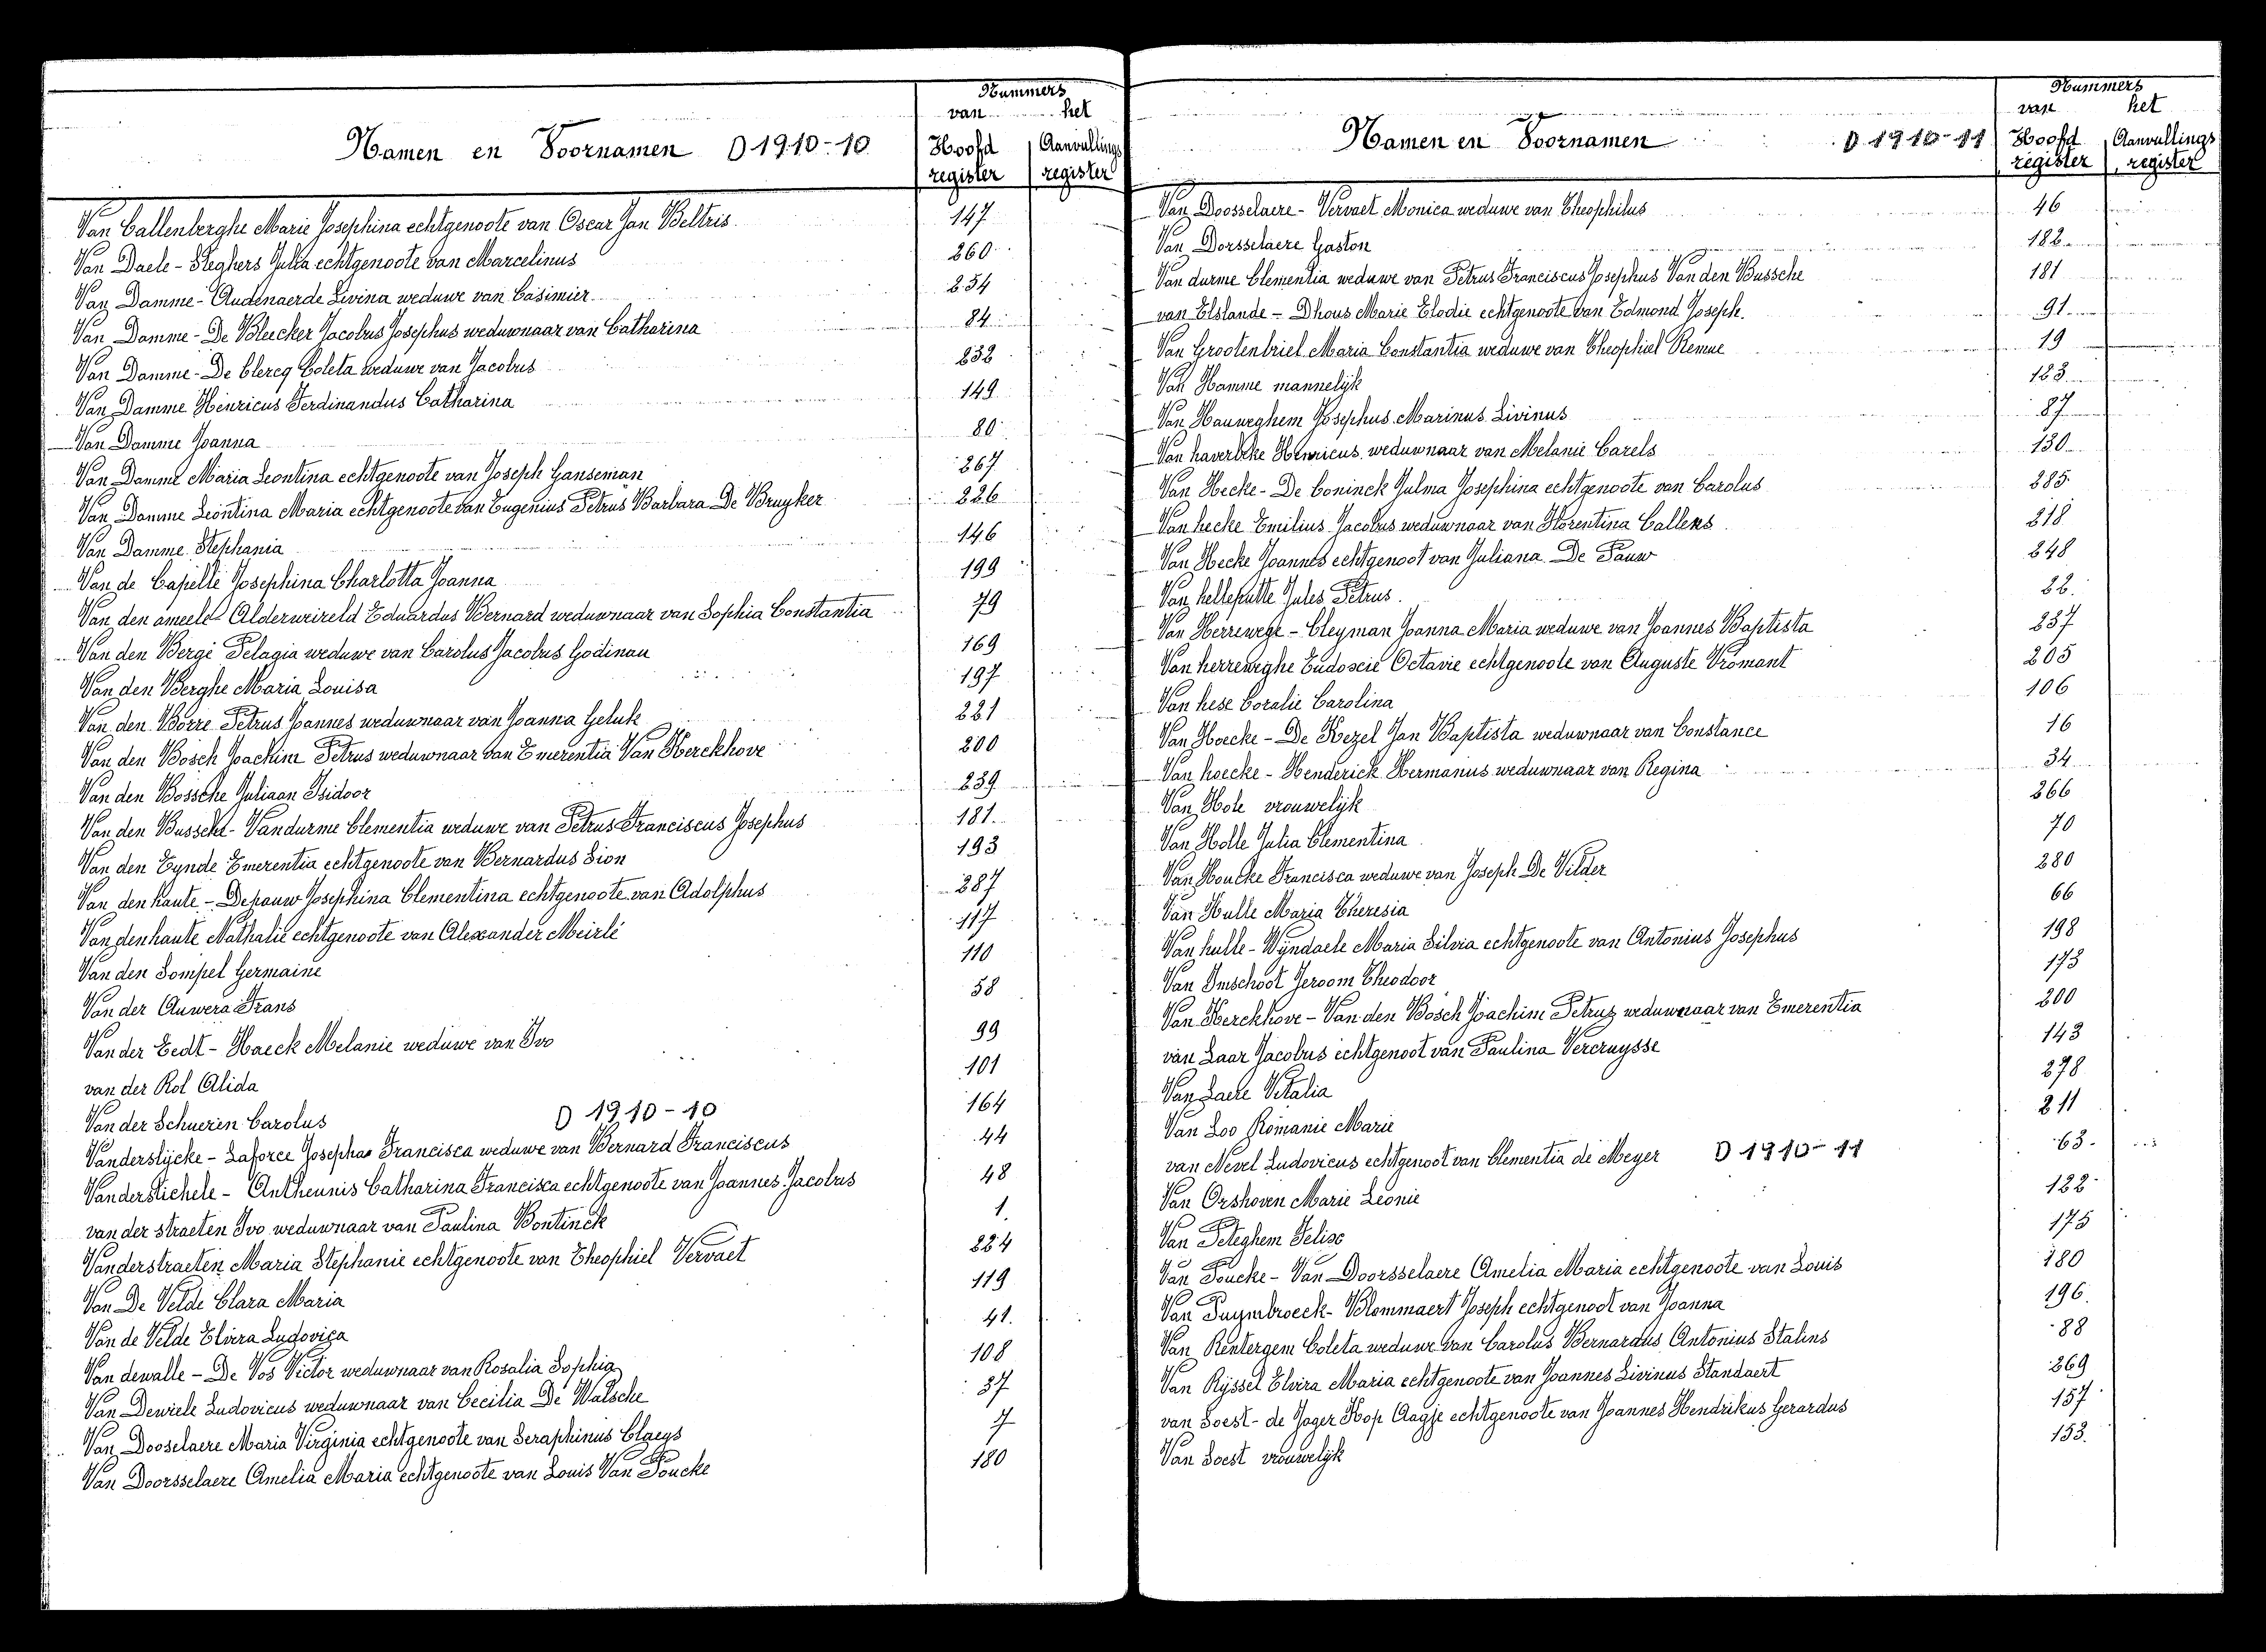 Nummers
van het
Namen en Voornamen D 1910-10 Hoofd register Aanvullings register
Van Callenberghe Marie Josephina echtgenoote van Oscar Jan Beltris 147
Van Daele - Steghers Julia echtgenoote van Marcelinus 260
Van Damme - Audenaerde Livina weduwe van Casimier 254
Van Damme - De Bleecker Jacobus Josephus weduwnaar van Catharina 84
Van Damme - De Clercq Coleta weduwe van Jacobus 232
Van Damme Henricus Ferdinandus Catharina 149
Van Damme Joanna 80
Van Damme Maria Leontina echtgenoote van Joseph Ganseman 267
Van Damme Leontina Maria echtgenoote van Eugenius Petrus Barbara De Bruyker 226
Van Damme Stephania 146
Van de Capelle Josephina Charlotta Joanna 199
Van den ameele - Alderweireld Eduardus Bernard weduwnaar van Sophia Constantia 79
Van den Berge Pelagia weduwe van Carolus Jacobus Godinau 169
Van den Berghe Maria Louisa 197
Van den Borre Petrus Joannes weduwnaar van Joanna Geluk 221
Van den Bosch Joachim Petrus weduwnaar van Emerentia Van Kerckhove 200
Van den Bossche Juliaan Isidoor 239
Van den Bussche - Vandurme Clementia weduwe van Petrus Franciscus Josephus 181
Van den Eynde Emerentia echtgenoote van Bernardus Sion 193
Van den haute - Depauw Josephina Clementina echtgenoote van Adolphus 287
Van den haute Nathalie echtgenoote van Alexander Meirlé 117
Van den Sompel Germaine 110
Van der Auwera Frans 58
Van der Eedt - Haeck Melanie weduwe van Ivo 99
van der Rol Alida 101
Van der Schueren Carolus D 1910-10 164
Vanderslycke - Laforce Josepha Francisca weduwe van Bernard Franciscus 44
Vanderstichele - Antheunis Catharina Francisca echtgenoote van Joannes Jacobus 48
van der straeten Ivo weduwnaar van Paulina Bontinck 1
Vanderstraeten Maria Stephanie echtgenoote van Theophiel Vervaet 224
Van De Velde Clara Maria 119
Van de Velde Elvira Ludovica 41
Van dewalle - De Vos Victor weduwnaar van Rosalia Sophia 108
Van Dewiele Ludovicus weduwnaar van Cecilia De Walsche 37
Van Dooselaere Maria Virginia echtgenoote van Seraphinus Claeys 7
Van Doorsselaere Amelia Maria echtgenoote van Louis Van Poucke 180
Nummers
van het
Namen en Voornamen D 1910-11 Hoofd register Aanvullings register
Van Doosselaere - Vervaet Monica weduwe van Theophilus 46
Van Dorsselaere Gaston 182
Van durme Clementia weduwe van Petrus Franciscus Josephus Van den Bussche 181
van Elslande - Dhous Marie Elodie echtgenoote van Edmond Joseph 91
Van Grootenbriel Maria Constantia weduwe van Theophiel Remue 19
Van Hamme mannelijk 183
Van Hauweghem Josephus Marinus Livinus 87
Van haverbeke Henricus weduwnaar van Melanie Carels 130
Van Hecke - De Coninck Julma Josephina echtgenoote van Carolus 285
Van hecke Emilius Jacobus weduwnaar van Florentina Callens 218
Van Hecke Joannes echtgenoot van Juliana De Pauw 248
Van helleputte Jules Petrus 22
Van Herrewege - Cleyman Joanna Maria weduwe van Joannes Baptista 237
Van herreweghe Eudoxie Octavie echtgenoote van Auguste Vromant 205
Van hese Coralie Carolina 106
Van Hoecke - De Kezel Jan Baptista weduwnaar van Constance 16
Van hoecke - Henderick Hermanus weduwnaar van Regina 34
Van Hole vrouwelijk 266
Van Holle Julia Clementina 70
Van Houcke Francisca weduwe van Joseph De Vilder 280
Van Hulle Maria Theresia 66
Van hulle - Wyndaele Maria Silvia echtgenoote van Antonius Josephus 198
Van Imschoot Jeroom Theodoor 173
Van Kerckhove - Van den Bosch Joachim Petrus weduwnaar van Emerentia 200
van Laar Jacobus echtgenoot van Paulina Vercruysse 143
Van Laere Vitalia 278
Van Loo Romanie Marie 211
van Nevel Ludovicus echtgenoot van Clementia de Meyer D 1910-11 63
Van Orshoven Marie Leonie 122
Van Peteghem Felise 175
Van Poucke - Van Doorsselaere Amelia Maria echtgenoote van Louis 180
Van Puymbroeck - Blommaert Joseph echtgenoot van Joanna 196
Van Rentergem Coleta weduwe van Carolus Bernardus Antonius Stalins 88
Van Ryssel Elvira Maria echtgenoote van Joannes Livinus Standaert 269
van Soest - de Jager Hop Aagje echtgenoote van Joannes Hendrikus Gerardus 157
Van Soest vrouwelijk 153